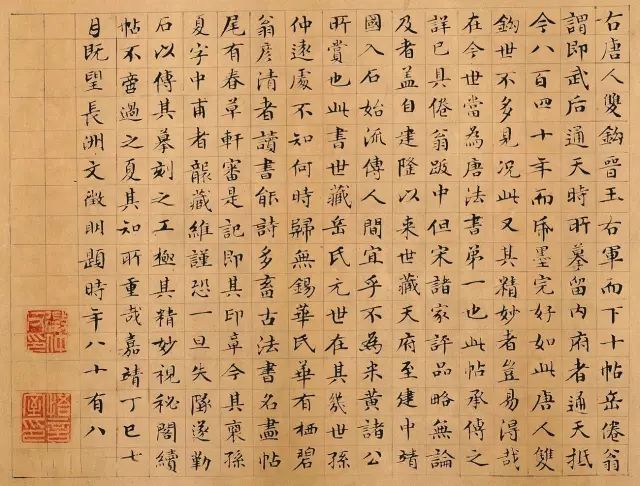 右唐人雙鈎晉王右軍而下十帖岳倦翁
謂即武后通天時所摹留內府者通天抵
今八百四十年而帋墨完好如此唐人雙
鈎世不多見況此又其精妙者豈易得哉
在今世當為唐法書第一也此帖承傳之
詳已具倦翁跋中但宋諸家評品略無論
及者蓋自建隆以来世藏天府至建中靖
國入石始流傳人間宜乎不為米黃諸公
所賞也此書世藏岳氏元世在其幾世孫
仲遠處不知何時歸無錫華氏華有栖碧
翁彥清者讀書能詩多畜古法書名畫帖
尾有春草軒審是記即其印章今其裔孫
夏字中甫者襲藏維謹恐一旦失墜遂勒
石以傳其摹刻之工極其精妙視秘閣續
帖不啻過之夏其知所重哉嘉靖丁巳七
月既望長洲文徵明題時年八十有八
悟言室印